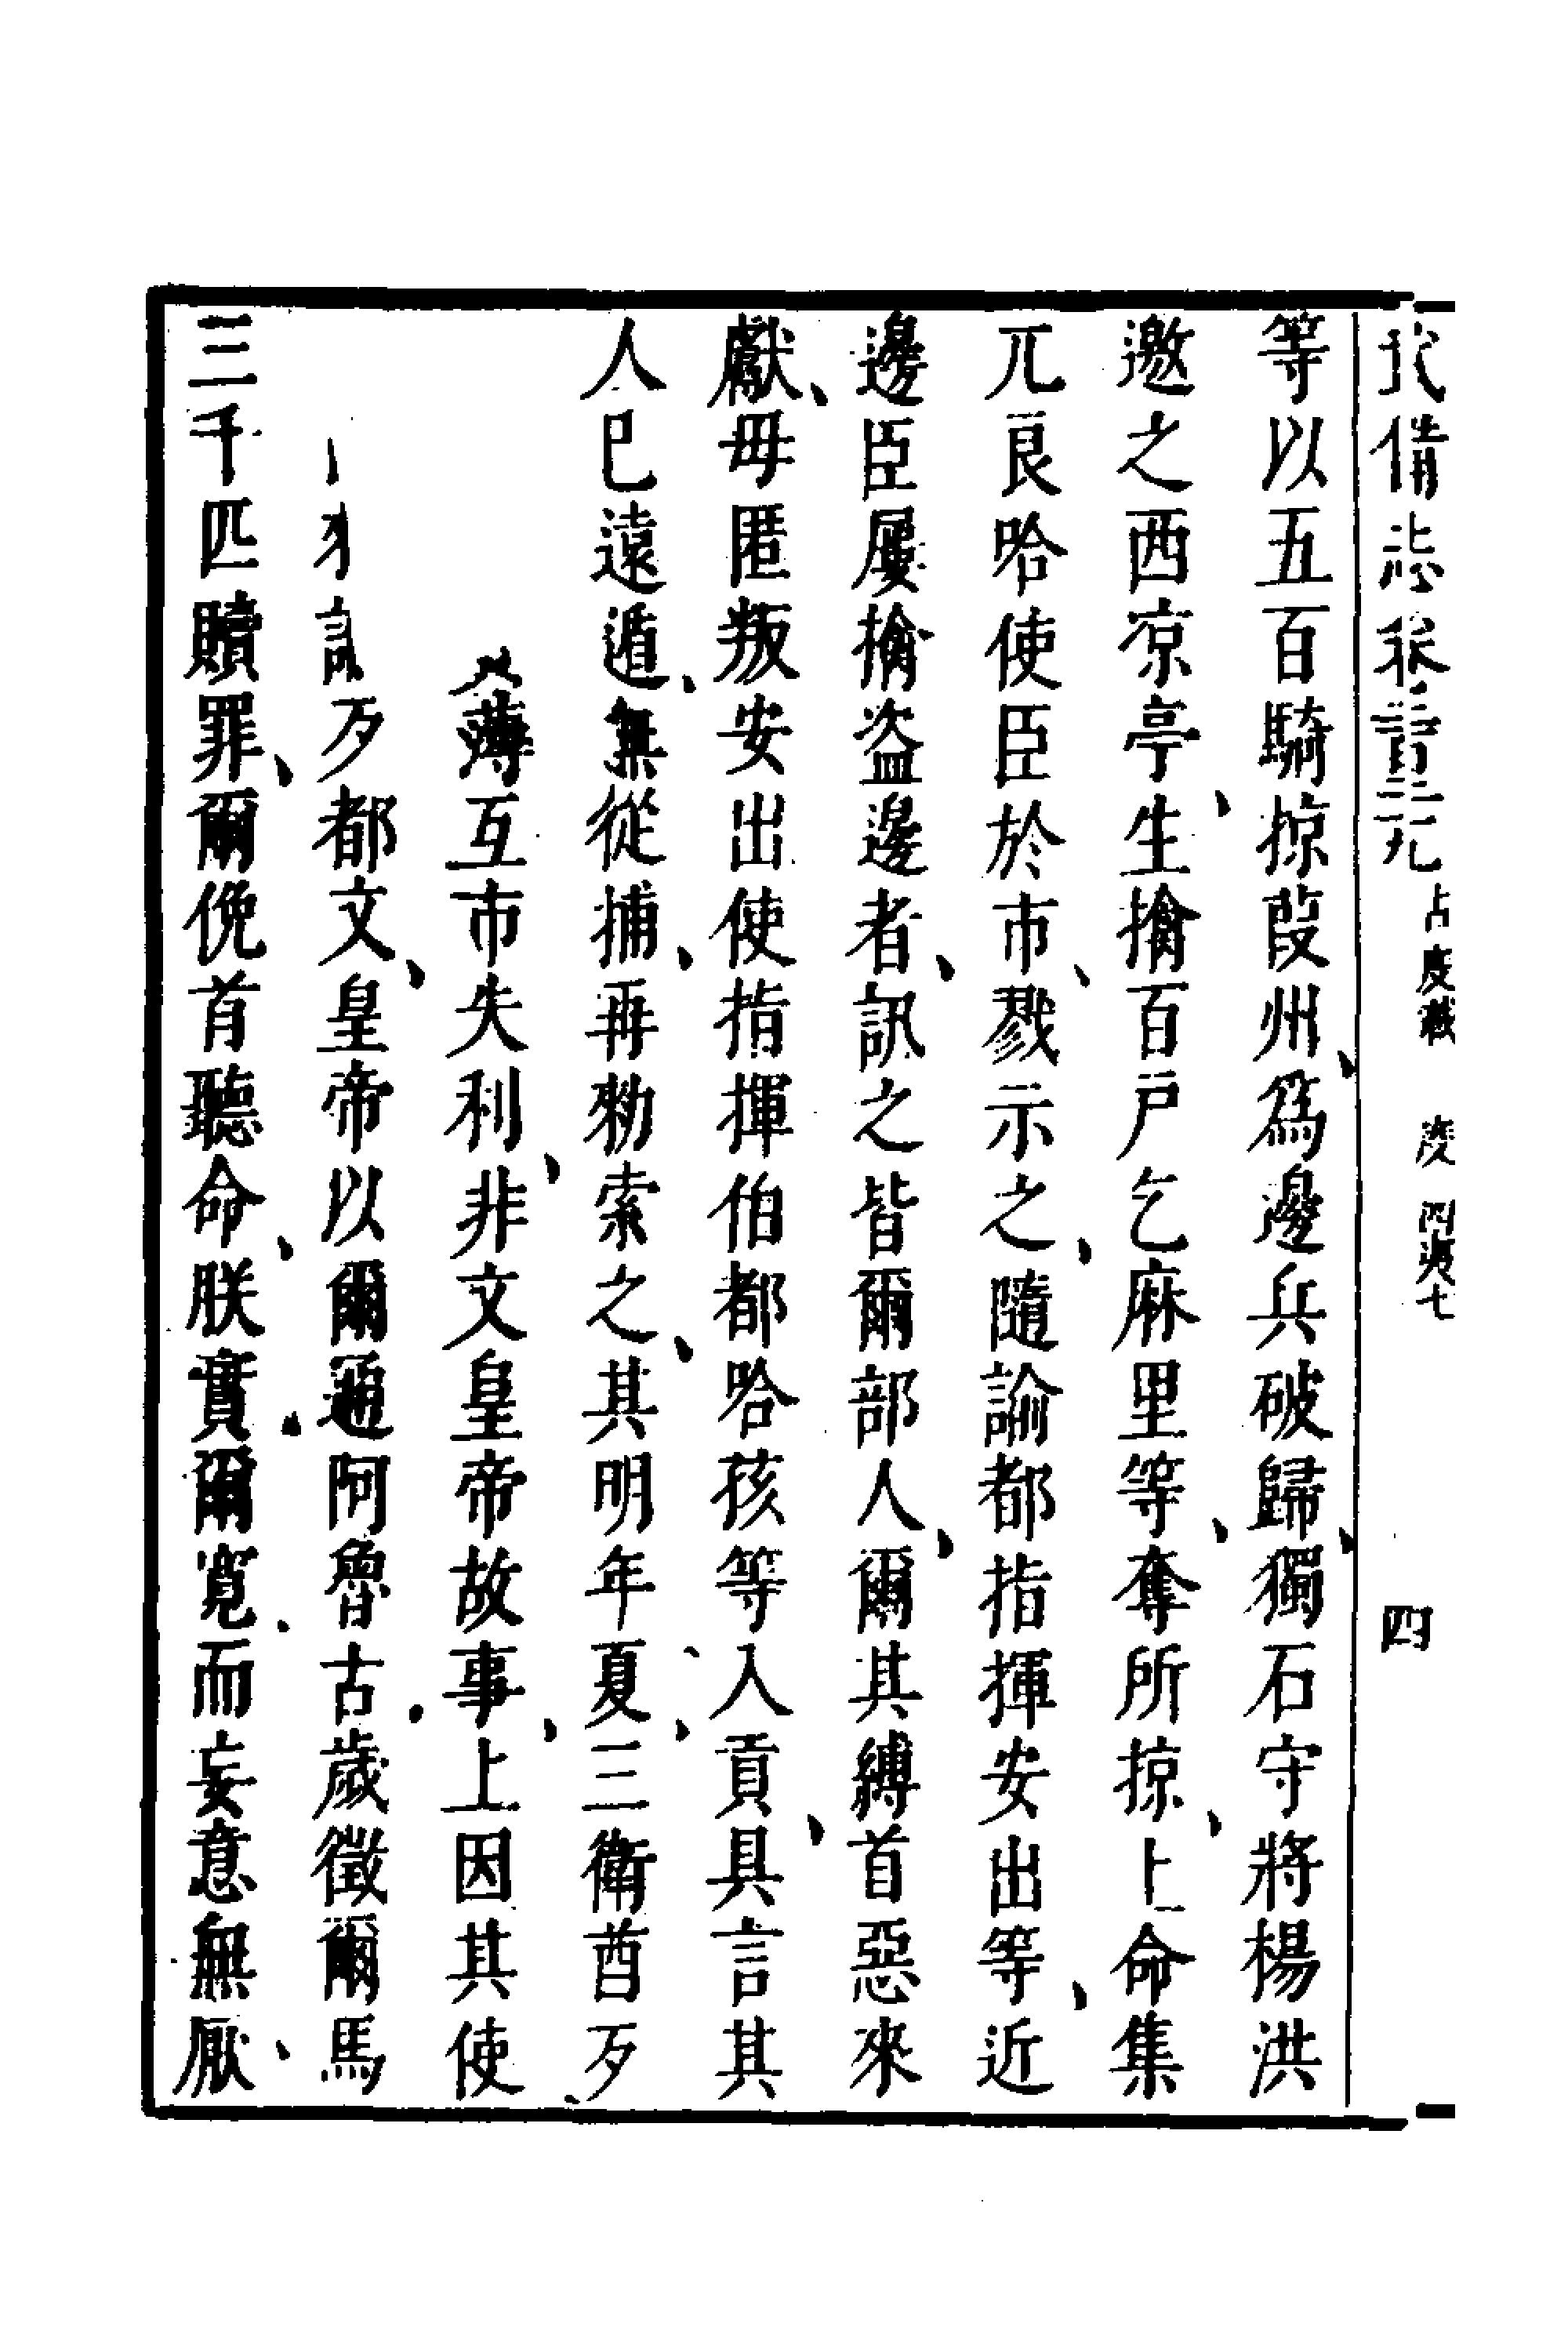 武備志卷二百二十九 占度載 度 四夷七 四
等以五百騎掠葭州爲邊兵破歸獨石守將楊洪
邀之西凉亭生擒百戶乞麻里等奪所掠上命集
兀良哈使臣於市戮示之隨諭都指揮安出等近
邊臣屢擒盜邊者訊之皆爾部人爾其縛首惡來
獻毋匿叛安出使指揮伯都哈孩等入貢具言其
人巳遠遁無從捕再勑索之其明年夏三衛酋歹
薄互市失利非文皇帝故事上因其使
歹都文皇帝以爾通阿魯古歲徵爾馬
三千匹贖罪爾俛首聽命朕實爾寬而妄意無厭